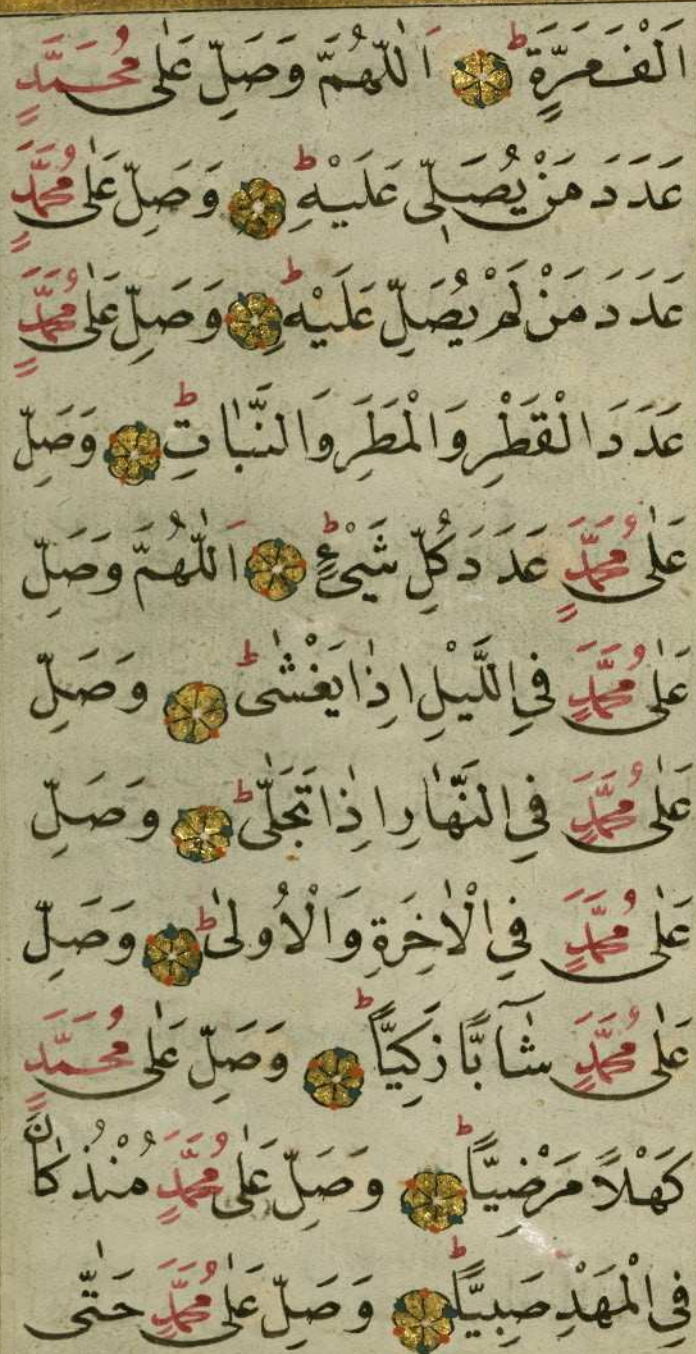 اَلْفَ مَرَّةٍ ط اَللّٰهُمَّ وَصَلِّ عَلٰى مُحَمَّدٍ
عَدَدَ مَنْ يُصَلِّى عَلَيْهِ ط وَصَلِّ عَلٰى مُحَمَّدٍ
عَدَدَ مَنْ لَمْ يُصَلِّ عَلَيْهِ ط وَصَلِّ عَلٰى مُحَمَّدٍ
عَدَدَ الْقَطْرِ وَالْمَطَرِ وَالنَّبَاتِ ط وَصَلِّ
عَلٰى مُحَمَّدٍ عَدَدَ كُلِّ شَيْءٍ ط اَللّٰهُمَّ وَصَلِّ
عَلٰى مُحَمَّدٍ فِى اللَّيْلِ اِذَا يَغْشٰى ط وَصَلِّ
عَلٰى مُحَمَّدٍ فِى النَّهَارِ اِذَا تَجَلّٰى ط وَصَلِّ
عَلٰى مُحَمَّدٍ فِى الْاٰخِرَةِ وَالْاُولٰى ط وَصَلِّ
عَلٰى مُحَمَّدٍ شَآبًّا زَكِيًّا ط وَصَلِّ عَلٰى مُحَمَّدٍ
كَهْلًا مَرْضِيًّا ط وَصَلِّ عَلٰى مُحَمَّدٍ مُنْذُ كَانَ
فِى الْمَهْدِ صَبِيًّا ط وَصَلِّ عَلٰى مُحَمَّدٍ حَتّٰى